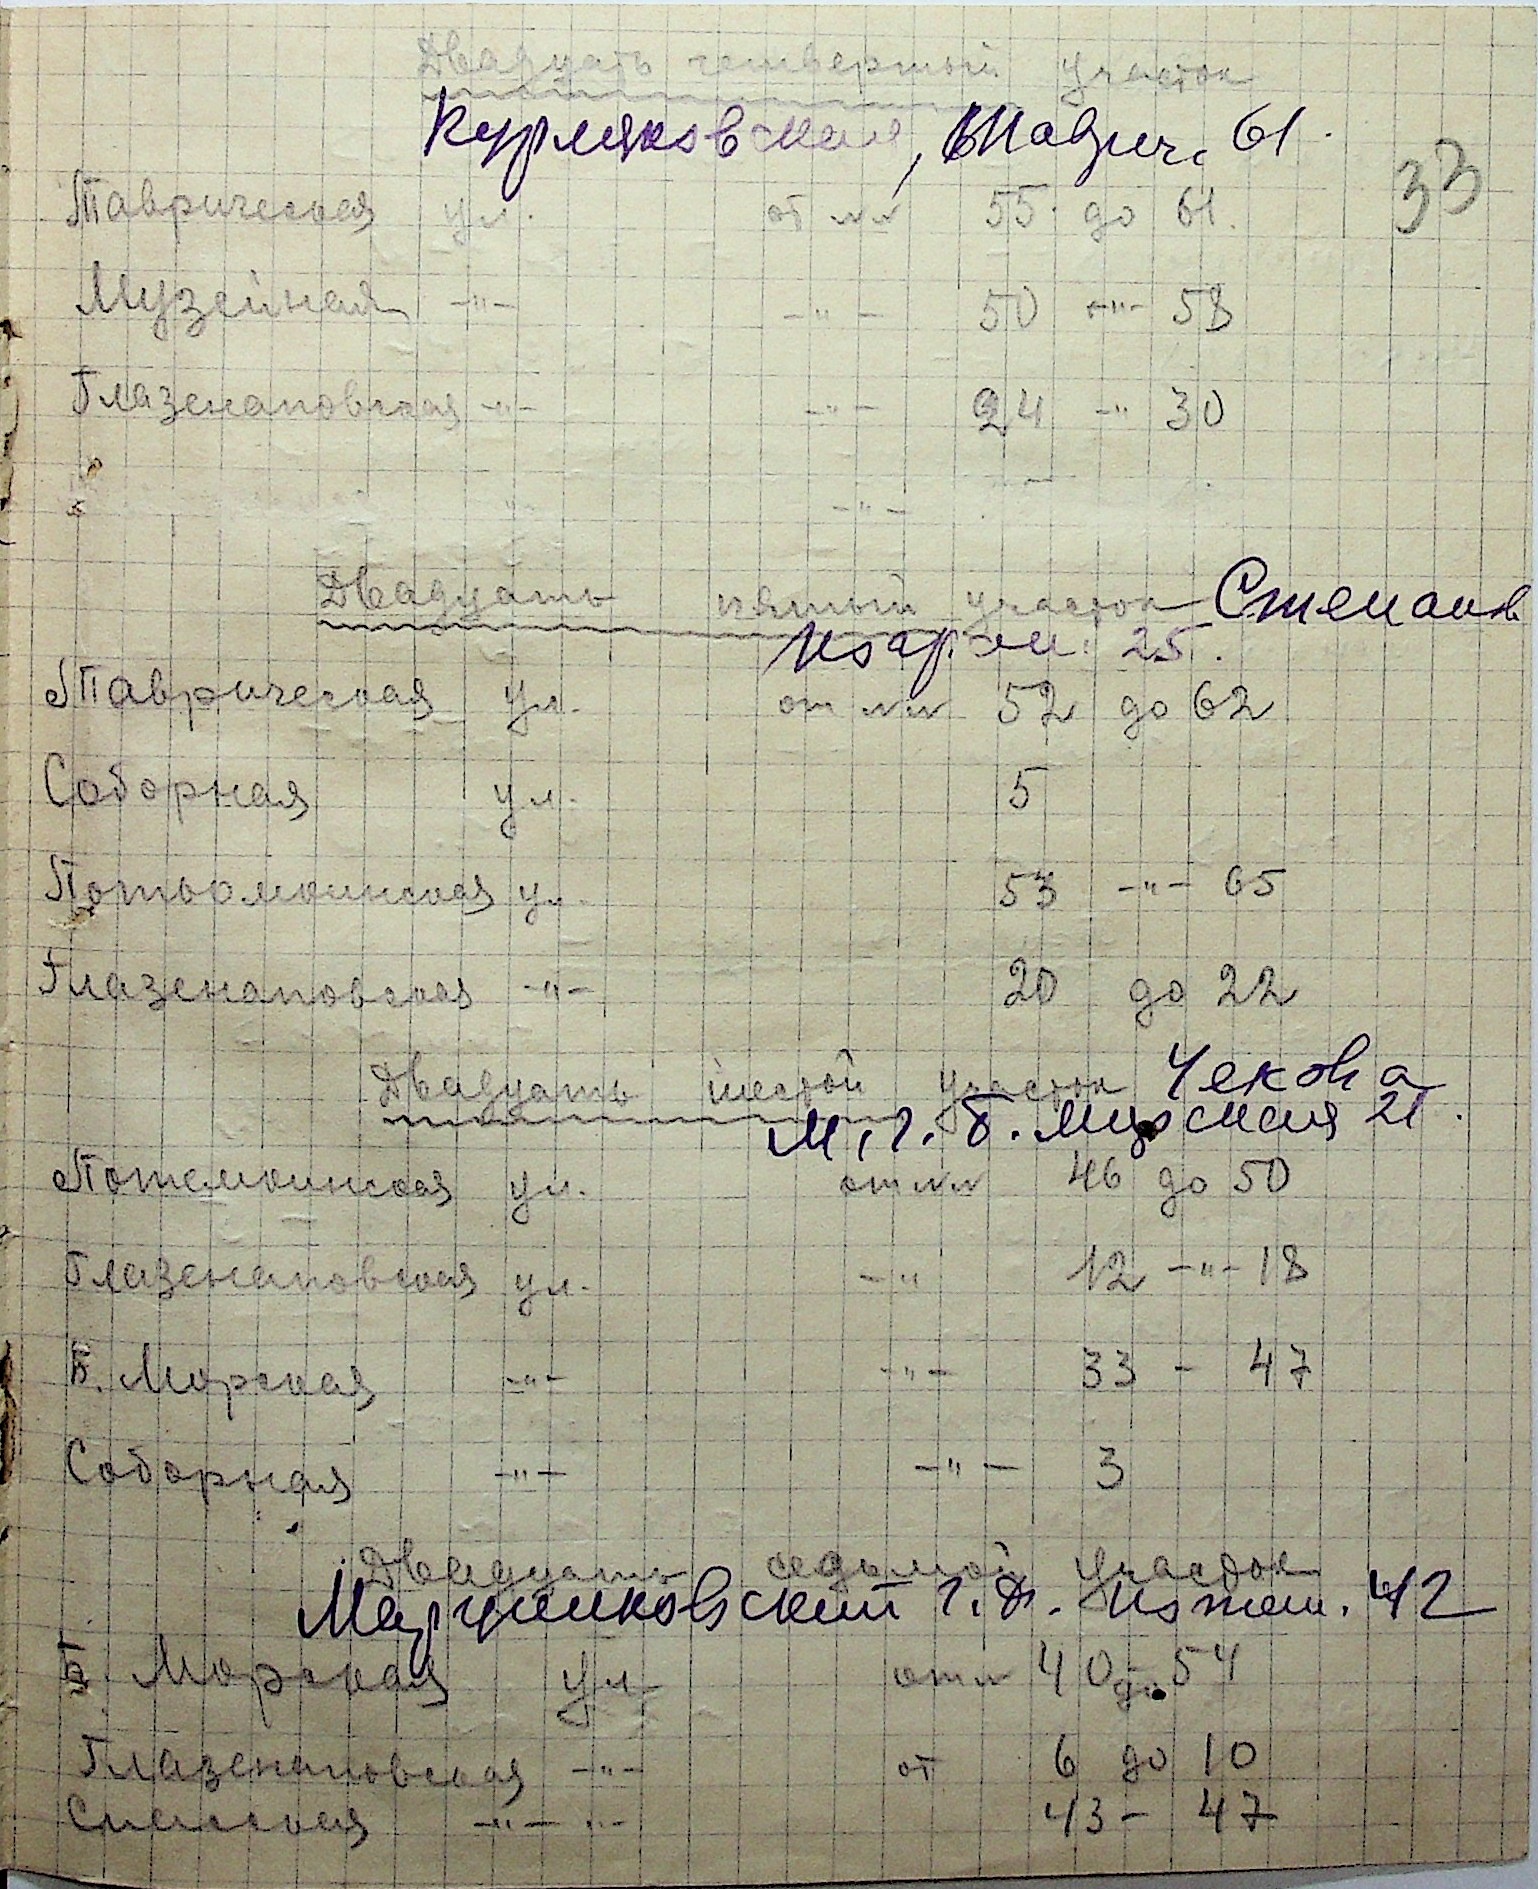 Двадцать четвертый участок
Курляковская, Таврич. 61.
33
Таврическая ул. от №№ 55 до 61.
Музейная -"- -"- 50 -"- 58
Глазенаповская -"- -"- 24 -"- 30
-"-
Двадцать пятый участок Степанов
25.
Таврическая ул. от №№ 52 до 62
Соборная ул. 5
Потьомкинская ул. 53 -"- 65
Глазенаповская -"- 20 до 22
Двадцать шестой участок Чекова
М. Г. Б. Морская 21.
Потемкинская ул. от №№ 46 до 50
Глазенаповская ул. -"- 12 -"- 18
Б. Морская -"- -"- 33 - 47
Соборная -"- -"- 3
Двадцать седьмой участок
Марцинковский Г. Д. Потем. 42
Б. Морская ул. от № 40 до 54
Глазенаповская -"- от 6 до 10
Спасская -"- 43 - 47